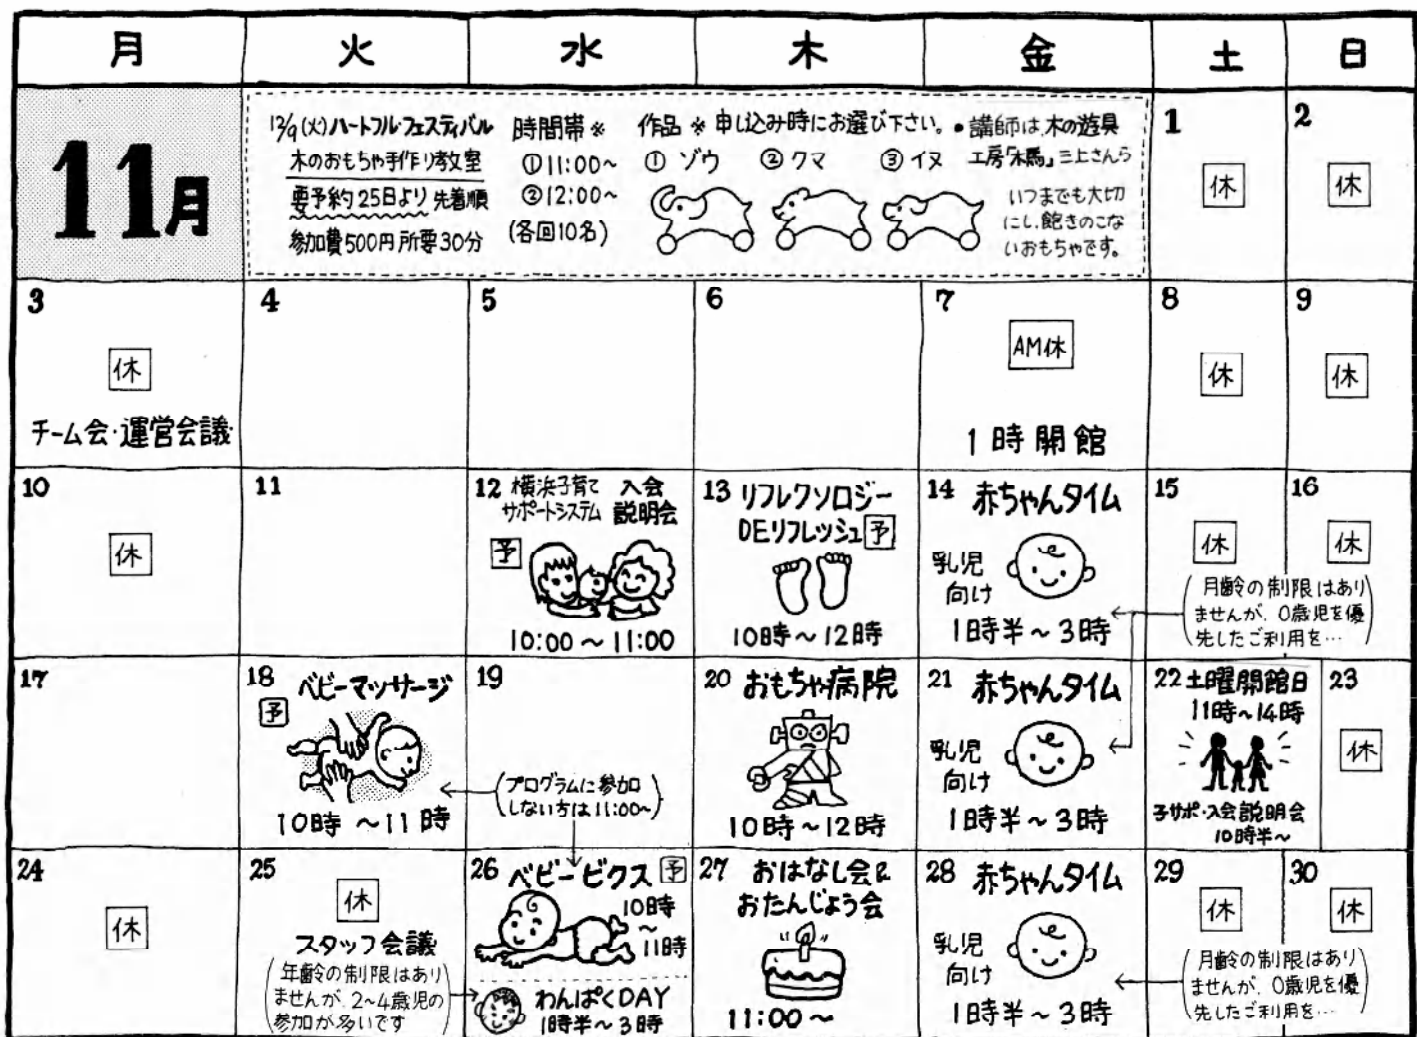 月 火 水 木 金 土 日
11月
12/9(火)ハートフル・フェスティバル
木のおもちゃ手作り教室
要予約25日より先着順
参加費500円 所要30分
時間帯※
①11:00~
②12:00~
(各回10名)
作品 ※申し込み時にお選び下さい。
① ゾウ ② クマ ③ イヌ
●講師は、木の遊具
工房「木馬」三上さんら
いつまでも大切
にし、飽きのこな
いおもちゃです。
1
休
2
休
3
休
チーム会・運営会議
4
5
6
7
AM休
1時開館
8
休
9
休
10
休
11
12 横浜子育て 入会
サポートシステム 説明会
予
10:00~11:00
13 リフレクソロジー
DEリフレッシュ 予
10時~12時
14 赤ちゃんタイム
乳児
向け
1時半~3時
15
休
16
休
(月齢の制限はあり
ませんが、0歳児を優
先したご利用を…)
17
18 ベビーマッサージ
予
10時~11時
19
(プログラムに参加
しない方は11:00~)
20 おもちゃ病院
10時~12時
21 赤ちゃんタイム
乳児
向け
1時半~3時
22 土曜開館日
11時~14時
子サポ・入会説明会
10時半~
23
休
24
休
25
休
スタッフ会議
(年齢の制限はあり
ませんが、2~4歳児の
参加が多いです)
26 ベビービクス 予
10時
~
11時
わんぱくDAY
1時半~3時
27 おはなし会&
おたんじょう会
11:00~
28 赤ちゃんタイム
乳児
向け
1時半~3時
29
休
30
休
(月齢の制限はあり
ませんが、0歳児を優
先したご利用を…)